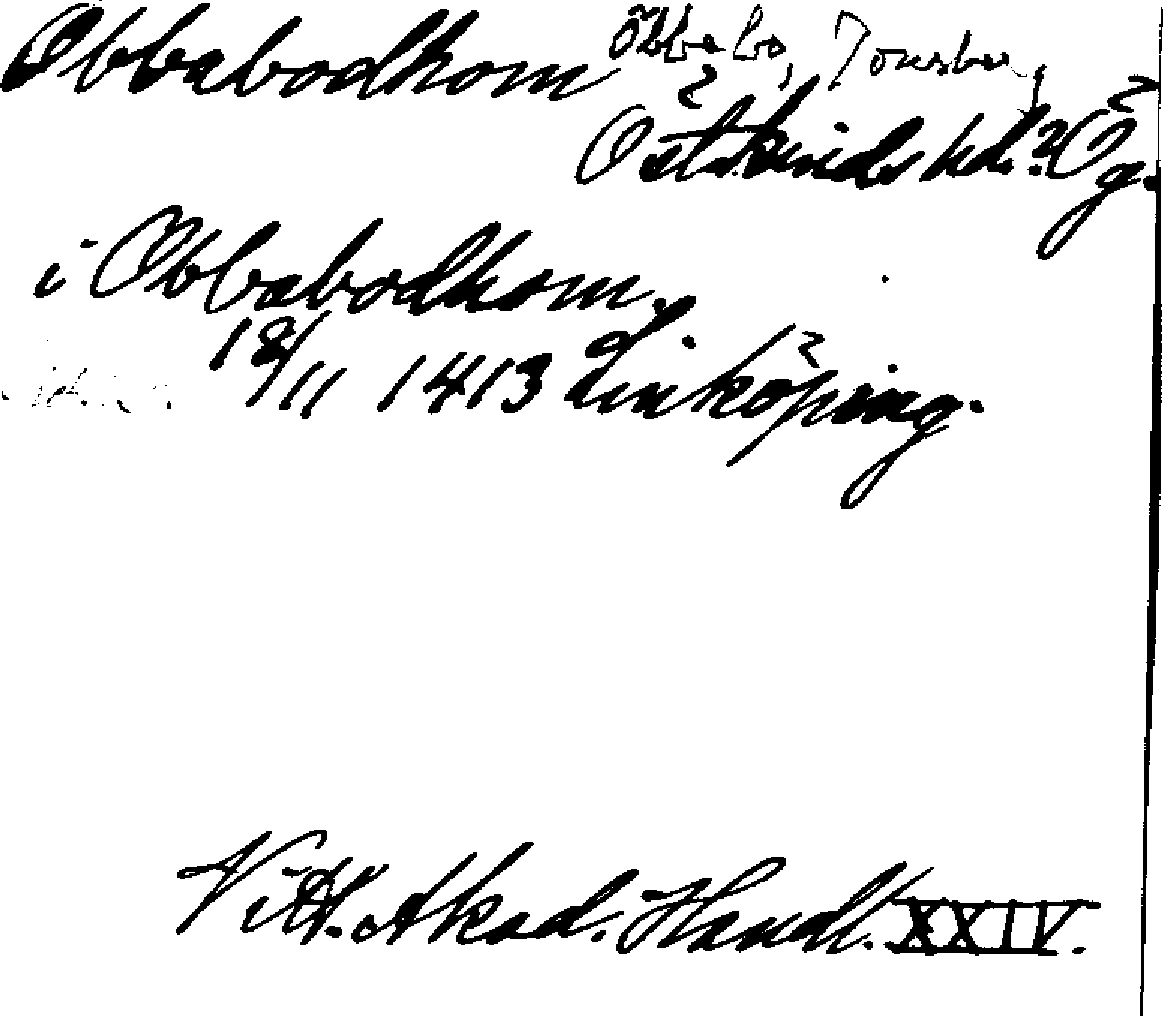 Obbabodhom Öbbabo, Tonsbu,
Östkinds hd.? Ög.
i Obbabodhom.
18/11 1413 Linköping.
Vitt. Akad. Handl. XXIV.